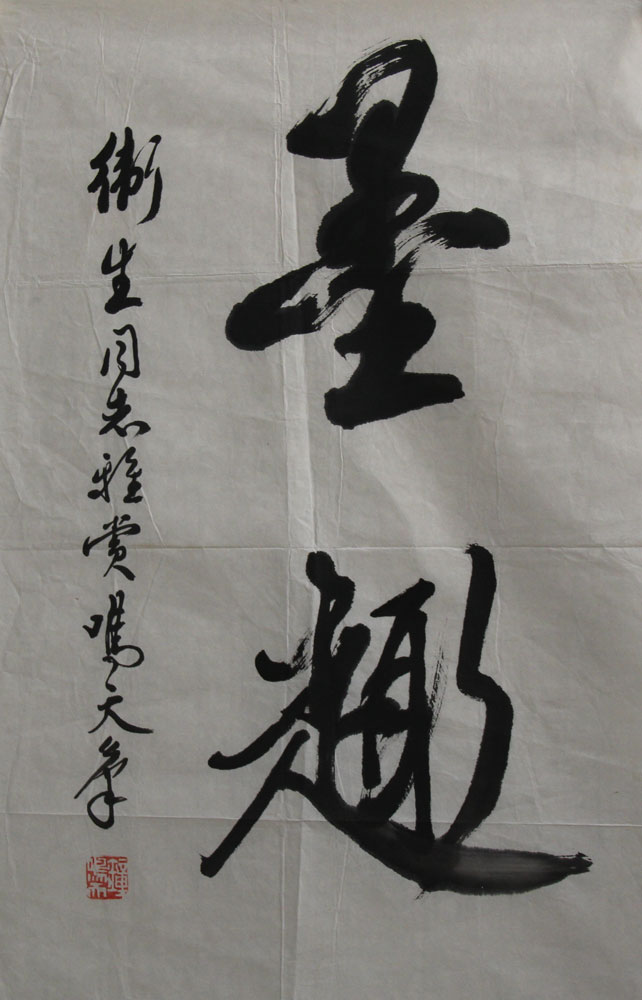 墨趣
衛生同志雅赏鳴天筆